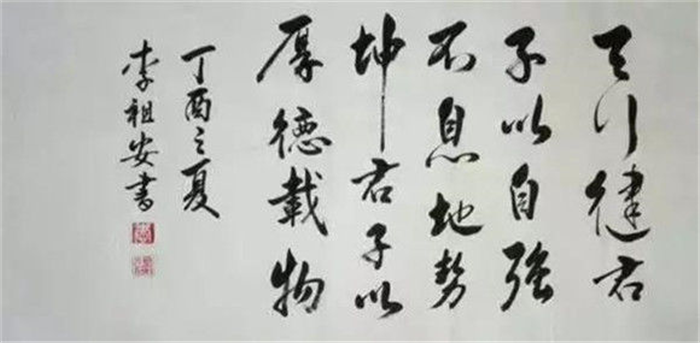 天行健君
子以自強
不息地勢
坤君子以
厚德載物
丁酉之夏
李祖安書